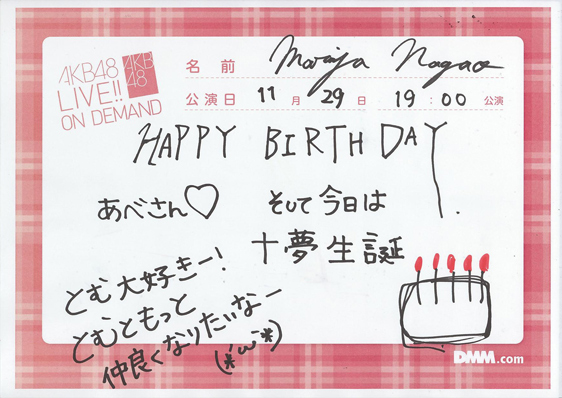 AKB48
LIVE!!
ON DEMAND
AKB
48
名前 Mariya Nagao
公演日 11月29日 19:00公演
HAPPY BIRTHDAY
あべさん♡ そして今日は
十夢生誕
とむ大好きー!
とむともっと
仲良くなりたいなー
(*´ω`*)
DMM.com